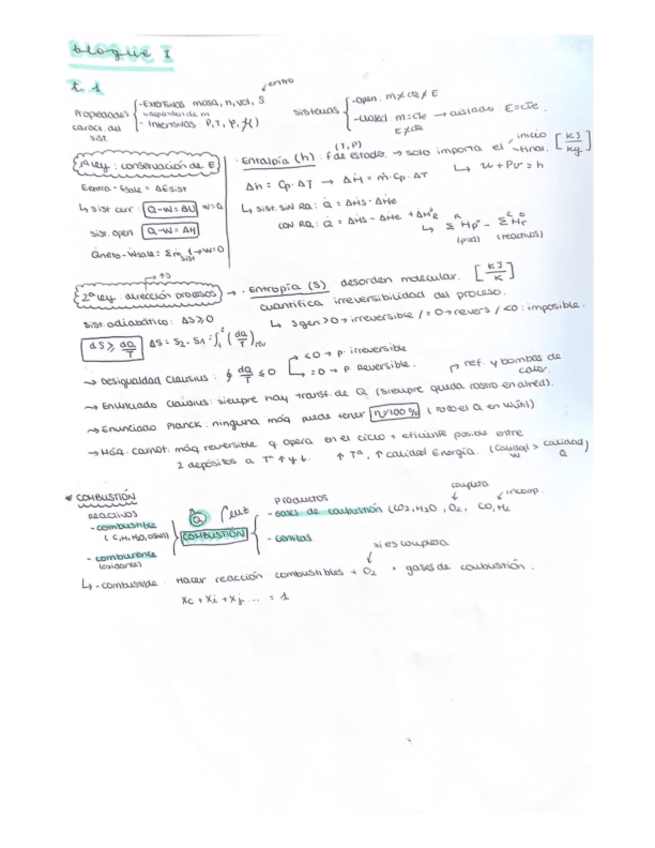 bloque I
t. 1
Propiedades caract. del sist.
- Extensivas masa, n, vol, S
entro
dependen de m
- Intensivas P, T, ρ
sistemas
- Open: m≠cte≠E
- Closed m=cte → aislado E=cte
E≠cte
1ª Ley: conservación de E
Eentra - Esale = ΔEsist
↳ sist cerr: Q-W=ΔU W=0
sist. open Q-W=ΔH
· Entalpía (h): f de estado. → solo importa el inicio final. [KJ/kg]
(T, P)
Δh = Cp·ΔT → ΔḢ = ṁ·Cp·ΔT
↳ u + Pv = h
↳ sist. SIN RQ: Q̇ = ΔḢs - ΔḢe
CON RQ: Q̇ = ΔḢs - ΔḢe + ΔH°R
↳ Σ Hp° - Σ Hr°
(prod) (reactivos)
→ +S
2ª Ley: dirección procesos → · Entropía (S) desorden molecular. [KJ/K]
cuantifica irreversibilidad del proceso.
↳ Sgen >0 → irreversible / = 0 → revers / <0: imposible.
sist. adiabático: ΔS≥0
dS ≥ dQ/T ΔS = S2 - S1 = ∫₁² (dQ/T)rev
→ Desigualdad Clausius: ∮ dQ/T ≤ 0
<0 → P. irreversible
=0 → P. Reversible.
ref. y bombas de calor.
→ Enunciado Clausius: siempre hay transf. de Q
→ Enunciado Planck: ninguna máq puede tener n=100% (todo el Q en W útil)
→ Máq. Carnot: máq reversible q opera en el ciclo + eficiente posible entre
2 depósitos a Tª ↑ y ↓. ↑ Tª, ↑ calidad Energía. (calidad W > calidad Q)
* COMBUSTIÓN
REACTIVOS
- combustible
- comburente
(oxidante)
Q
COMBUSTIÓN
productos
- gases de combustión (CO2, H2O, O2, CO, H2
completa
incomp.
- cenizas.
si es completa
↳ - combustible: Hacer reacción combustibles + O2 → gases de combustión.
xc + xi + xj ... = 1